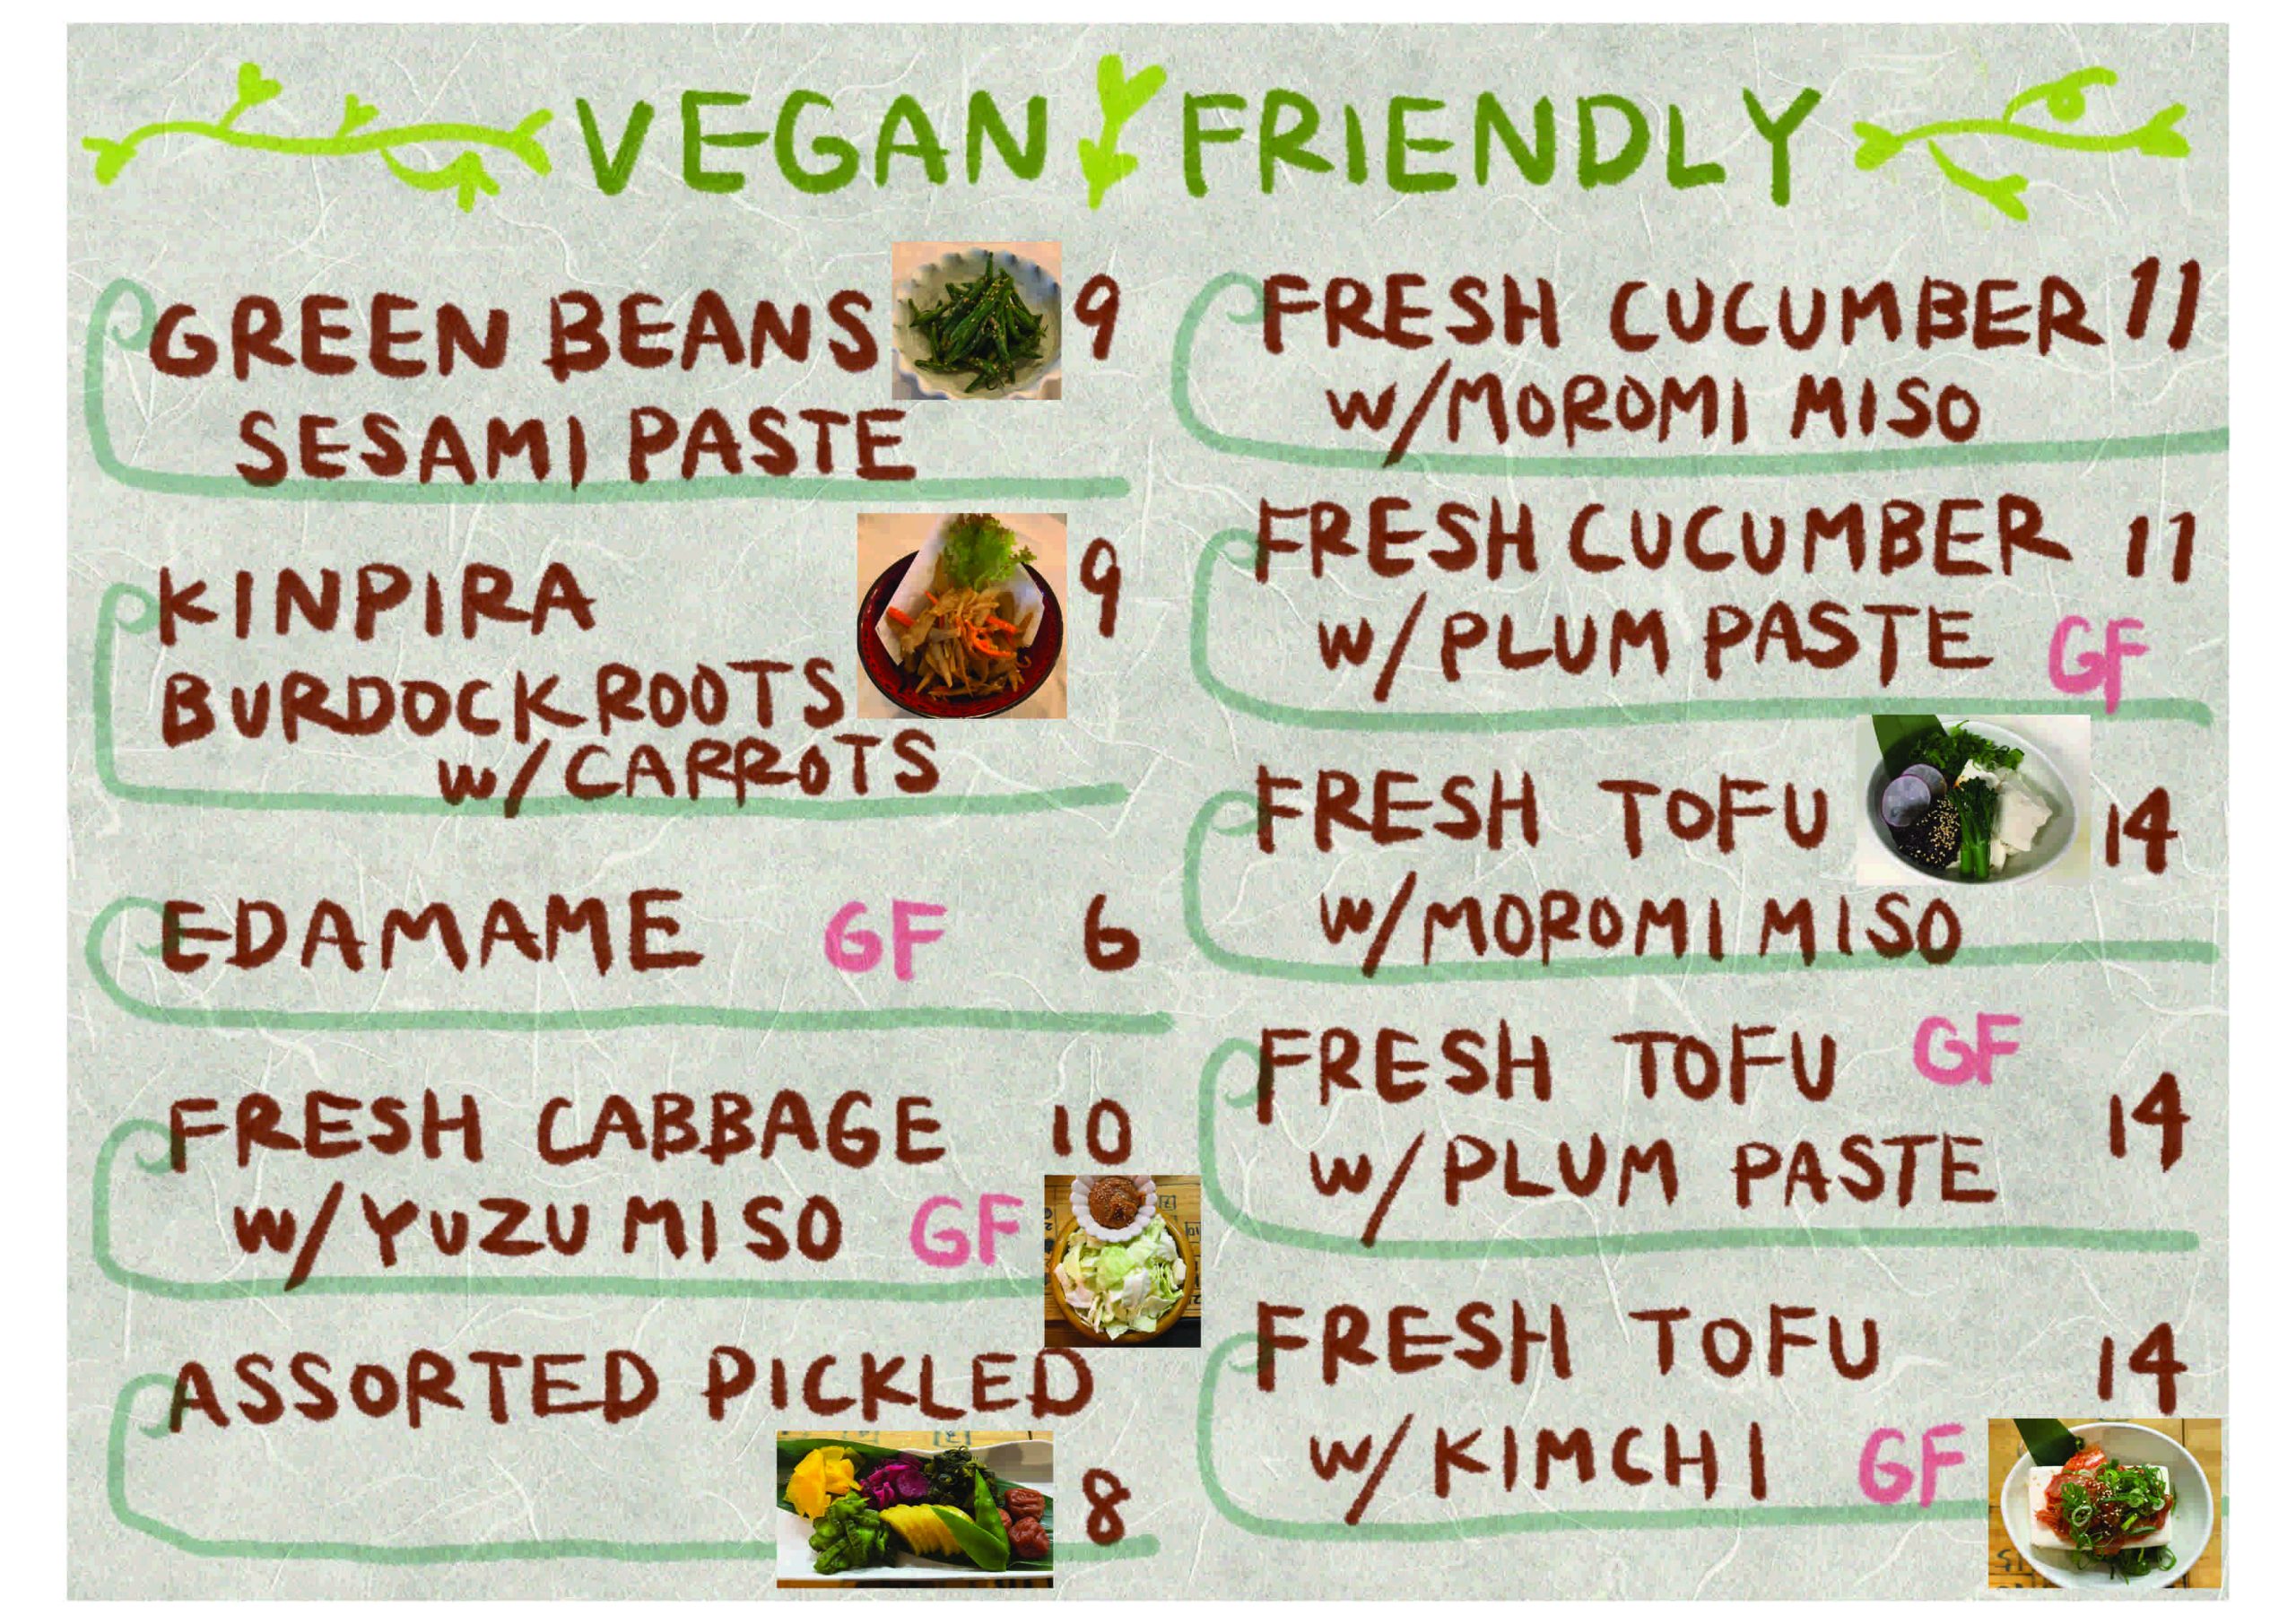 VEGAN FRIENDLY
GREEN BEANS 9
SESAMI PASTE
KINPIRA 9
BURDOCK ROOTS
W/CARROTS
EDAMAME GF 6
FRESH CABBAGE 10
W/YUZU MISO GF
ASSORTED PICKLED
8
FRESH CUCUMBER 11
W/MOROMI MISO
FRESH CUCUMBER 11
W/PLUM PASTE GF
FRESH TOFU 14
W/MOROMI MISO
FRESH TOFU GF
14
W/PLUM PASTE
FRESH TOFU 14
W/KIMCHI GF